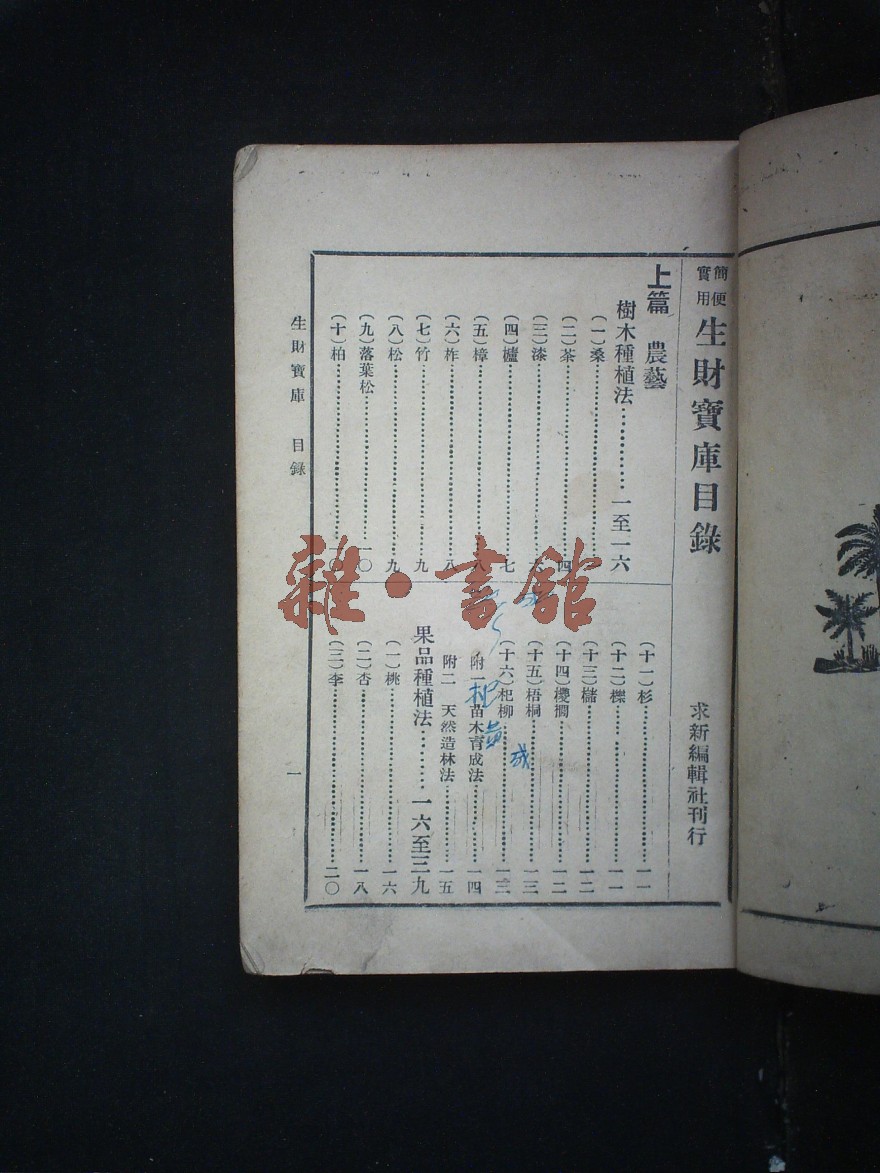 簡便
實用
生財寶庫目錄
求新編輯社刊行
上篇 農藝
樹木種植法…………一至一六
(一)桑
(二)茶…………四
(三)漆…………六
(四)櫨…………七
(五)樟…………八
(六)柞…………八
(七)竹…………九
(八)松…………九
(九)落葉松…………一〇
(十)柏…………一〇
(十一)杉…………一一
(十二)櫟…………一一
(十三)櫧…………一二
(十四)櫻櫚…………一二
(十五)梧桐…………一三
(十六)杞柳…………一三
附一 苗木育成法…………一四
附二 天然造林法…………一五
果品種植法………一六至三九
(一)桃…………一六
(二)杏…………一八
(三)李…………二〇
生財寶庫 目錄
一
雜·書館
成